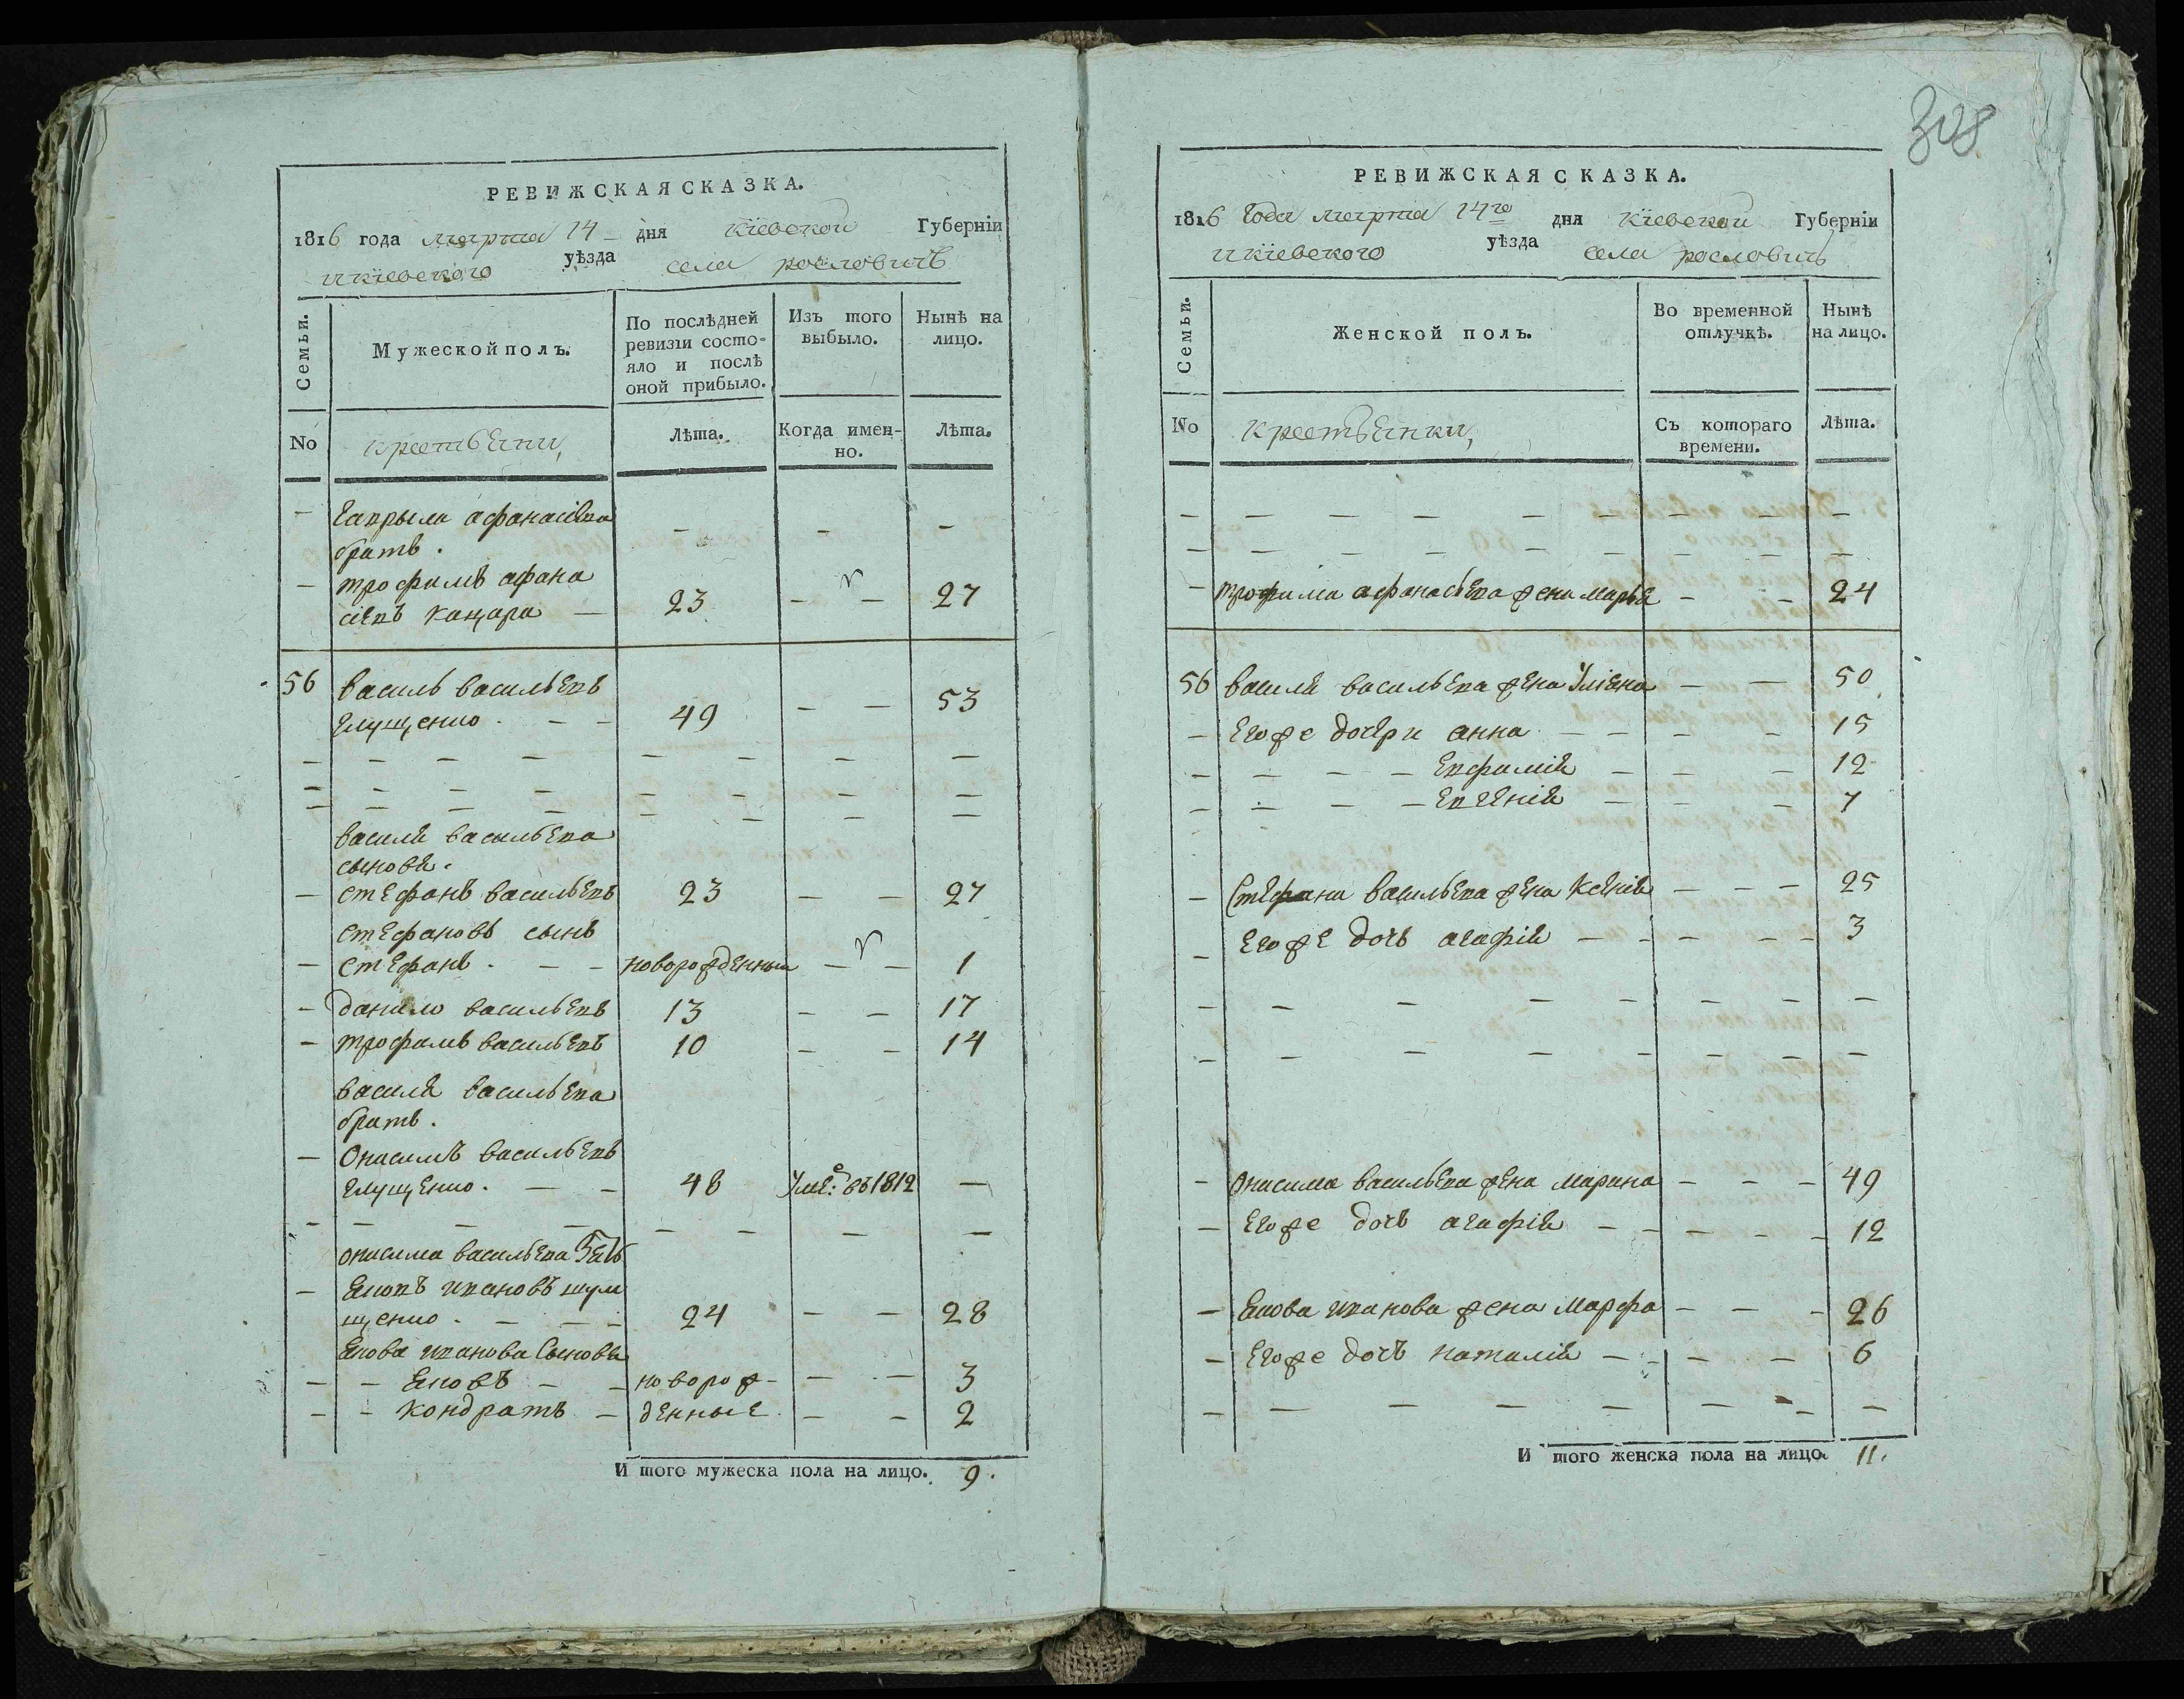 308
РЕВИЖСКАЯ СКАЗКА.
1816 года марта 14 дня Кіевской Губерніи
и Кіевского уѣзда села рословичъ
Семьи. Мужеской полъ. По послѣдней ревизіи состояло и послѣ оной прибыло. Изъ того выбыло. Нынѣ на лицо.
No крестьяни, Лѣта. Когда именно. Лѣта.
— гаврыла афанасіева — — —
братъ.
— трофимъ афана
сіевъ кацара — 23 — — 27
56 василь васильевъ
глущенко. — — 49 — — 53
василя васильева
сыновя.
— стефанъ васильевъ 23 — — 27
стефановъ сынъ
— стефанъ. — — новорожденныи — — 1
— данило васильевъ 13 — — 17
— трофимъ васильевъ 10 — — 14
василя васильева
братъ.
— Онисимъ васильевъ
глущенко. — — 48 Уме: въ 1812 —
онисима васильева Зять
— яковъ ивановъ
щенко. — — — 24 — — 28
якова иванова Сыновя
— — яковъ — — новорож- — — 3
— — кондратъ — денные — — 2
И того мужеска пола на лицо. 9.
РЕВИЖСКАЯ СКАЗКА.
1816 года марта 14го дня Кіевской Губерніи
и Кіевского уѣзда села рословичъ
Семьи. Женской полъ. Во временной отлучкѣ. Нынѣ на лицо.
No крестьянки, Съ котораго времени. Лѣта.
— трофима афанасьева жена марья — — 24
56 василя васильева жена Уліяна — — 50
— Его же дочери анна — — — — 15
— — — — Евфимія — — — 12
— — — — Евгенія — — — 7
— Стефана васильева жена Ксенія — — — 25
— его же дочь агафія — — — — — 3
— Онисима васильева жена Марина — — — 49
— Его же дочь агафія — — — — — 12
— якова иванова жена Марфа — — — 26
— Его же дочь наталія — — — — 6
И того женска пола на лицо. 11.